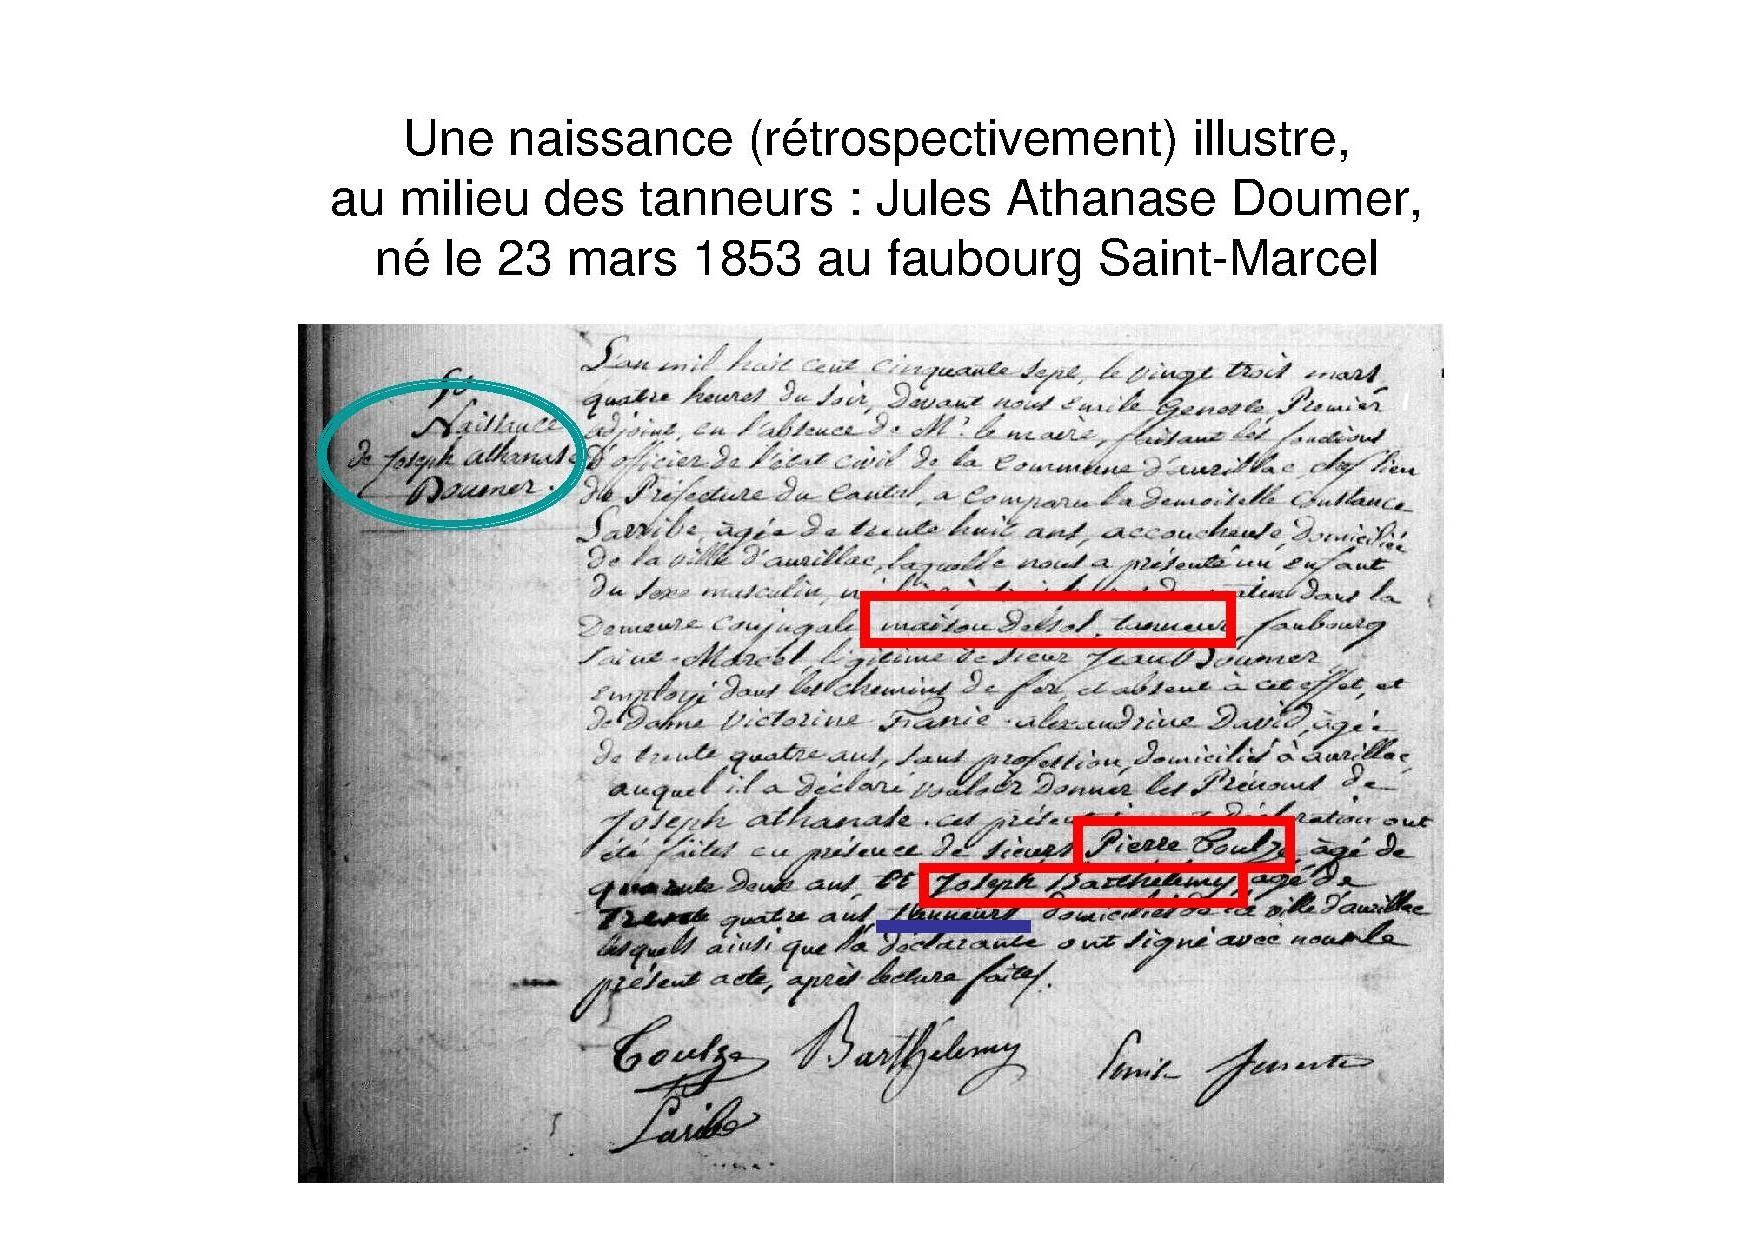 Une naissance (rétrospectivement) illustre,
au milieu des tanneurs : Jules Athanase Doumer,
né le 23 mars 1853 au faubourg Saint-Marcel
L'an mil huit cent cinquante sept, le vingt trois mars,
quatre heures du soir, Devant nous Emile Geneste Premier
Naissance
adjoint, en l'absence de Mr. le maire, faisant les fonctions
de Joseph athanase
D'officier de l'état civil de la Commune d'aurillac, chef lieu
Doumer.
de Préfecture du Cantal, a comparu la demoiselle Constance
Larribe, agée de trente huit ans, accoucheuse, domiciliée
de la ville d'aurillac, laquelle nous a présenté un enfant
du sexe masculin, dans la
Demeure conjugale maison Delsol, tanneur, faubourg
Saint-Marcel, légitime de sieur Jean Doumer
employé dans les chemins de fer, et absent à cet effet, et
de Dame Victorine Franie alexandrine David, agée
de trente quatre ans, sans profession, domiciliés à aurillac,
auquel il a déclaré vouloir donner les Prénoms de
Joseph athanase. ces ont
été faites en présence de sieurs Pierre Toulze, âgé de
quarante deux ans, et Joseph Barthélemy, agé de
Trente quatre ans, tanneurs, domiciliés de ville d'aurillac
lesquels ainsi que la déclarante ont signé avec nous le
présent acte, après lecture faite.
Toulze Barthélemy Emile Geneste
Laribe